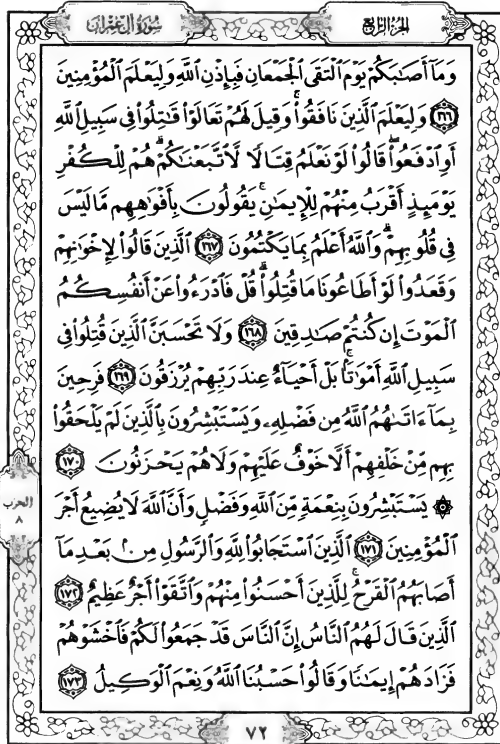 الجزء الرابع
سورة آل عمران
وَمَآ أَصَٰبَكُمْ يَوْمَ ٱلْتَقَى ٱلْجَمْعَانِ فَبِإِذْنِ ٱللَّهِ وَلِيَعْلَمَ ٱلْمُؤْمِنِينَ
﴿١٦٦﴾ وَلِيَعْلَمَ ٱلَّذِينَ نَافَقُوا۟ۚ وَقِيلَ لَهُمْ تَعَالَوْا۟ قَٰتِلُوا۟ فِى سَبِيلِ ٱللَّهِ
أَوِ ٱدْفَعُوا۟ۖ قَالُوا۟ لَوْ نَعْلَمُ قِتَالًا لَّٱتَّبَعْنَٰكُمْۗ هُمْ لِلْكُفْرِ
يَوْمَئِذٍ أَقْرَبُ مِنْهُمْ لِلْإِيمَٰنِۚ يَقُولُونَ بِأَفْوَٰهِهِم مَّا لَيْسَ
فِى قُلُوبِهِمْۗ وَٱللَّهُ أَعْلَمُ بِمَا يَكْتُمُونَ ﴿١٦٧﴾ ٱلَّذِينَ قَالُوا۟ لِإِخْوَٰنِهِمْ
وَقَعَدُوا۟ لَوْ أَطَاعُونَا مَا قُتِلُوا۟ۗ قُلْ فَٱدْرَءُوا۟ عَنْ أَنفُسِكُمُ
ٱلْمَوْتَ إِن كُنتُمْ صَٰدِقِينَ ﴿١٦٨﴾ وَلَا تَحْسَبَنَّ ٱلَّذِينَ قُتِلُوا۟ فِى
سَبِيلِ ٱللَّهِ أَمْوَٰتًۢاۚ بَلْ أَحْيَآءٌ عِندَ رَبِّهِمْ يُرْزَقُونَ ﴿١٦٩﴾ فَرِحِينَ
بِمَآ ءَاتَىٰهُمُ ٱللَّهُ مِن فَضْلِهِۦ وَيَسْتَبْشِرُونَ بِٱلَّذِينَ لَمْ يَلْحَقُوا۟
بِهِم مِّنْ خَلْفِهِمْ أَلَّا خَوْفٌ عَلَيْهِمْ وَلَا هُمْ يَحْزَنُونَ ﴿١٧٠﴾
۞ يَسْتَبْشِرُونَ بِنِعْمَةٍ مِّنَ ٱللَّهِ وَفَضْلٍ وَأَنَّ ٱللَّهَ لَا يُضِيعُ أَجْرَ
ٱلْمُؤْمِنِينَ ﴿١٧١﴾ ٱلَّذِينَ ٱسْتَجَابُوا۟ لِلَّهِ وَٱلرَّسُولِ مِنۢ بَعْدِ مَآ
أَصَابَهُمُ ٱلْقَرْحُۚ لِلَّذِينَ أَحْسَنُوا۟ مِنْهُمْ وَٱتَّقَوْا۟ أَجْرٌ عَظِيمٌ ﴿١٧٢﴾
ٱلَّذِينَ قَالَ لَهُمُ ٱلنَّاسُ إِنَّ ٱلنَّاسَ قَدْ جَمَعُوا۟ لَكُمْ فَٱخْشَوْهُمْ
فَزَادَهُمْ إِيمَٰنًا وَقَالُوا۟ حَسْبُنَا ٱللَّهُ وَنِعْمَ ٱلْوَكِيلُ ﴿١٧٣﴾
الحزب
٨
٧٢